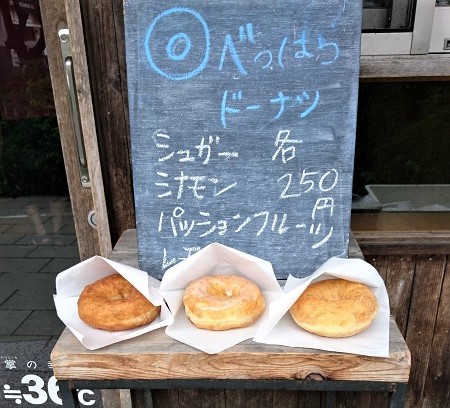 ◎べっぱら
ドーナツ
シュガー 各
シナモン 250円
パッションフルーツ
レ
掌の
≒36℃